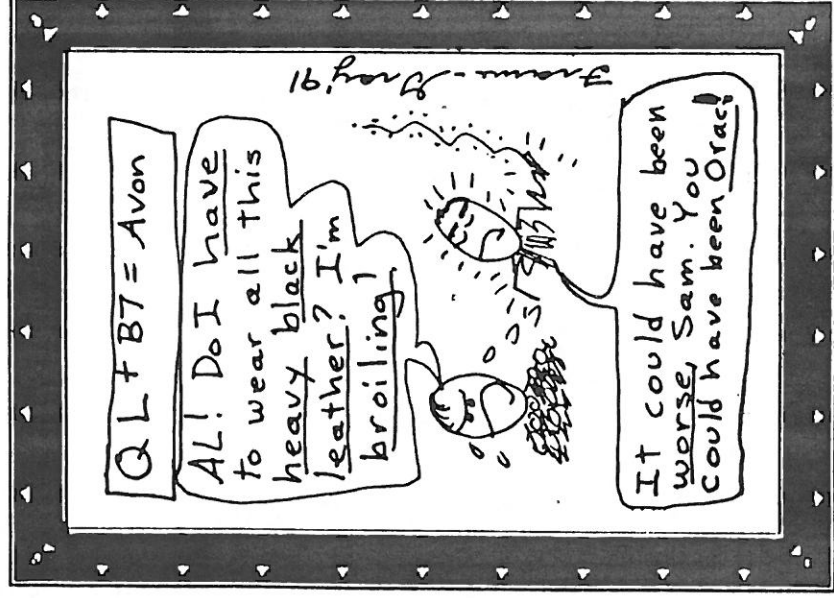 QL + B7 = Avon
AL! Do I have
to wear all this
heavy black
leather? I'm
broiling!
It could have been
worse, Sam. You
could have been Orac!